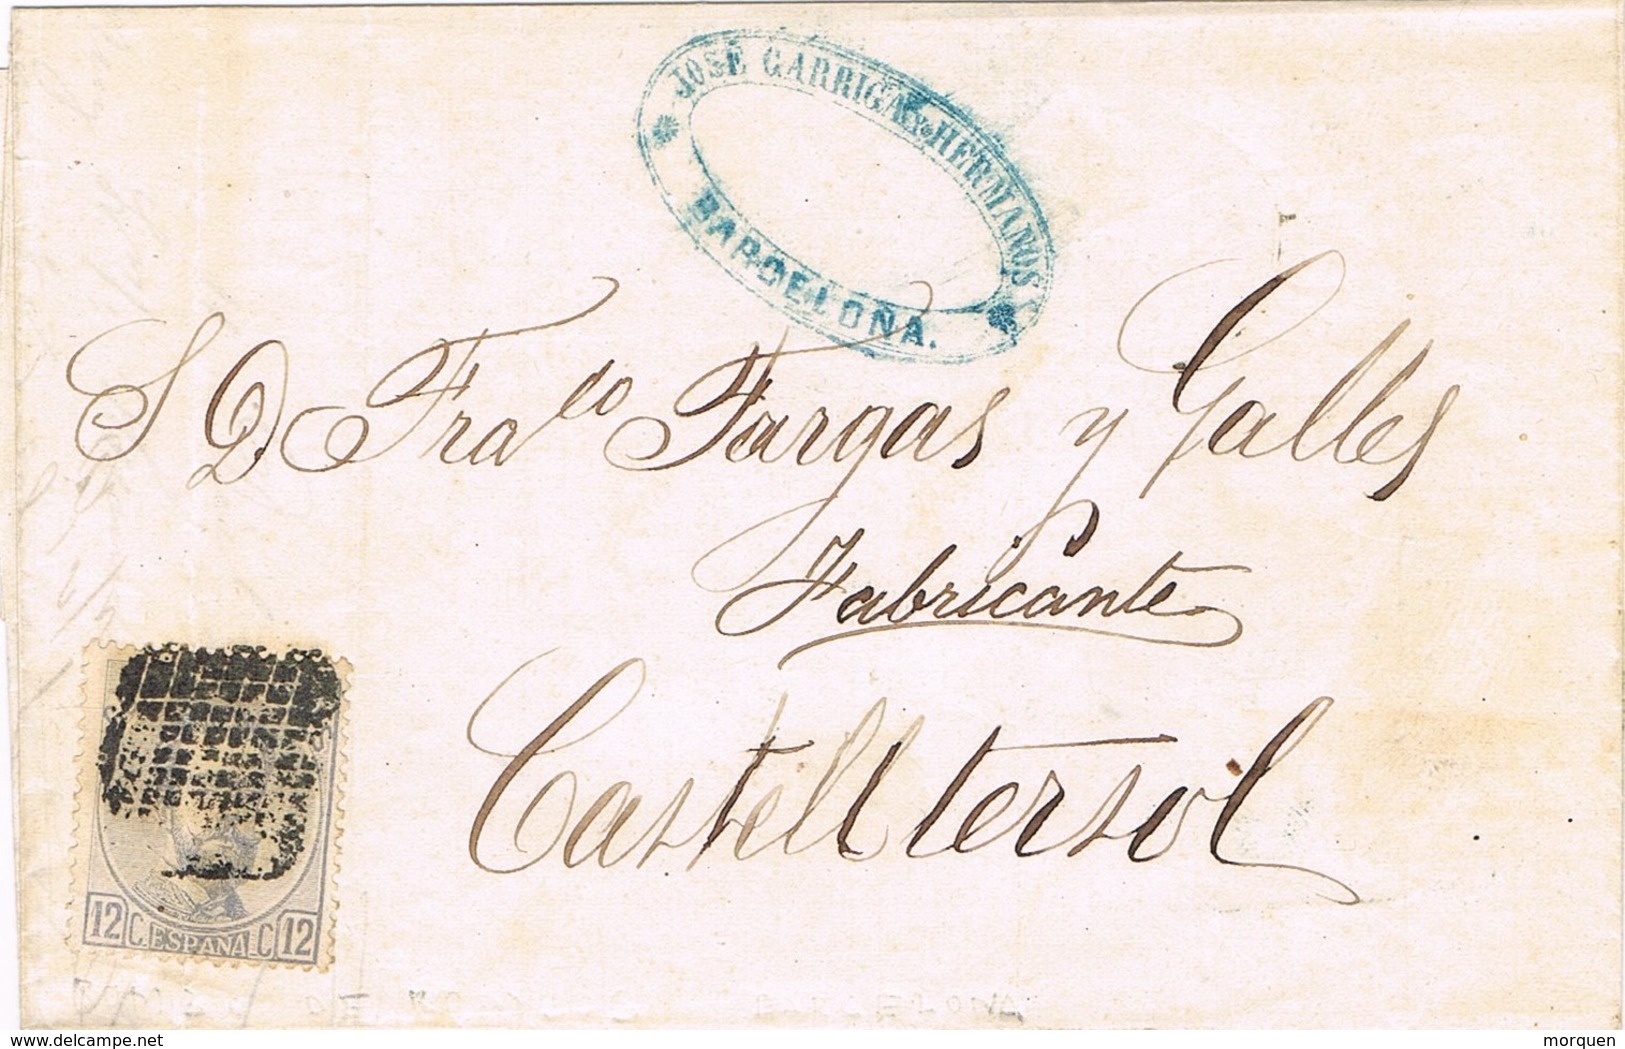 JOSÉ GARRIGA Y HERMANOS
BARCELONA.
S D Fra.co Fargas y Galles
Fabricante
Castelltersol
12 C. ESPAÑA C 12
delcampe.net
morquen